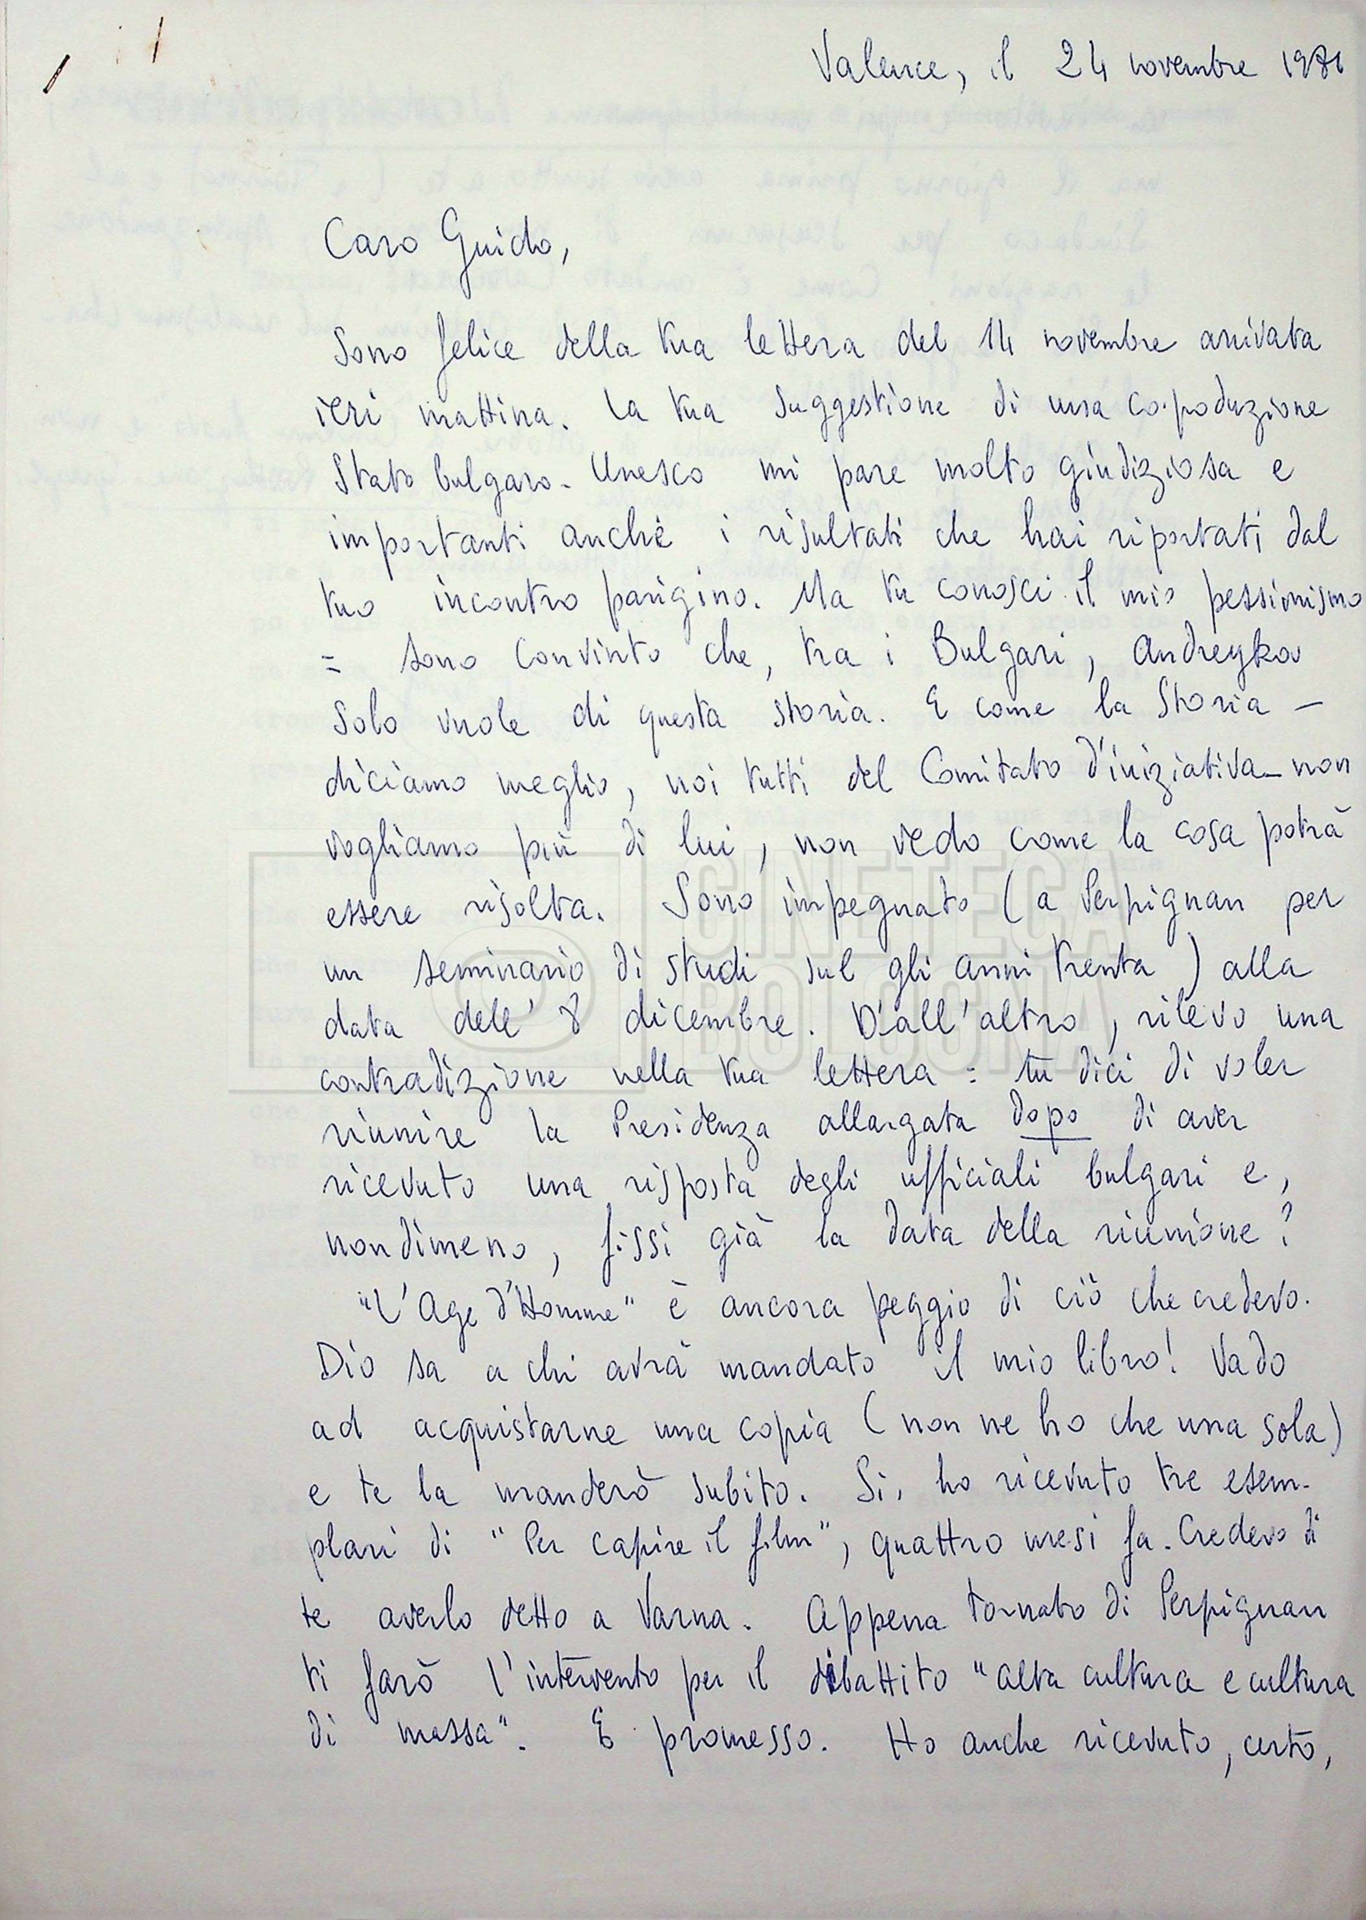 Valence, il 24 novembre 1981
Caro Guido,
Sono felice della tua lettera del 14 novembre arrivata
ieri mattina. La tua suggestione di una co-poduzione
Stato bulgaro-Unesco mi pare molto giudiziosa e
importanti anche i risultati che hai riportati dal
tuo incontro parigino. Ma tu conosci il mio pessimismo
= sono convinto che, tra i Bulgari, Andreykov
solo vuole di questa storia. E come la Storia —
diciamo meglio, noi tutti del Comitato d'iniziativa - non
vogliamo più di lui, non vedo come la cosa potrà
essere risolta. Sono impegnato (a Perpignan per
un seminario di studi sul gli anni trenta) alla
data dell' 8 dicembre. D'all'altro, rilevo una
contradizione nella tua lettera : tu dici di voler
riunire la Presidenza allargata dopo di aver
ricevuto una risposta degli ufficiali bulgari e,
nondimeno, fissi già la data della riunione?
"L'Age d'Homme" è ancora peggio di ciò che credevo.
Dio sa a chi avrà mandato il mio libro! Vado
ad acquistarne una copia (non ne ho che una sola)
e te la manderò subito. Si, ho ricevuto tre esem-
plari di "Per capire il film", quattro mesi fa. Credevo di
te averlo detto a Varna. Appena tornato di Perpignan
ti farò l'intervento per il dibattito "alta cultura e cultura
di massa". E promesso. Ho anche ricevuto, certo,
CINETECA
BOLOGNA